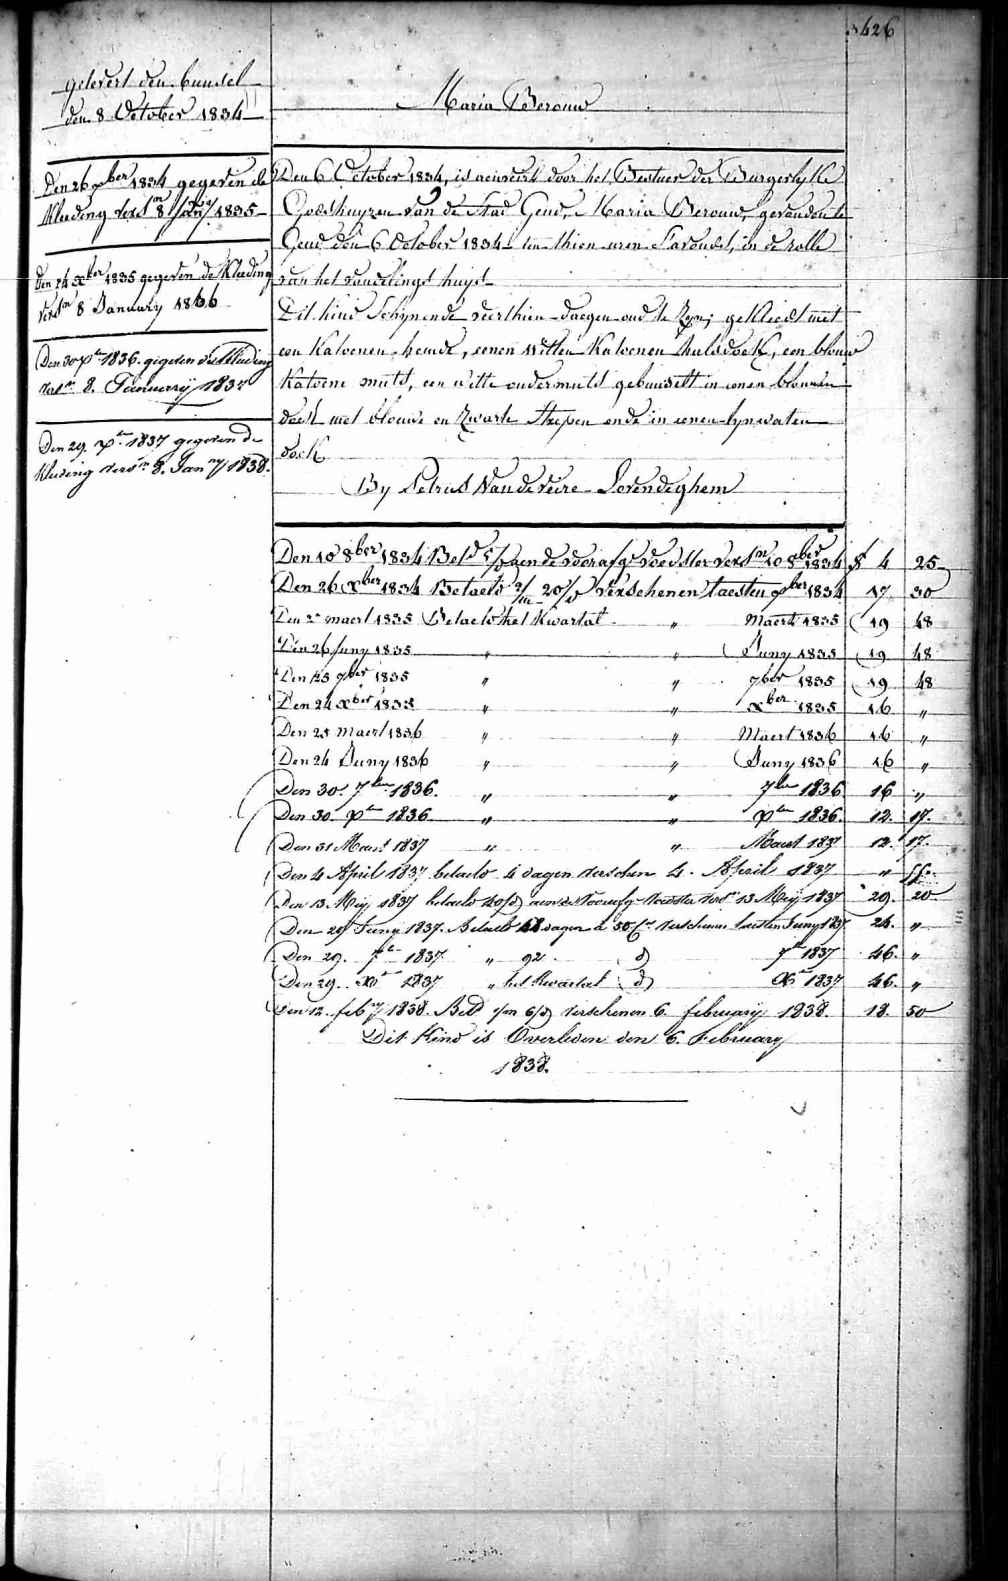 426
gelevert den bundel
den 8 October 1834
Maria Berouw
Den 26 xber 1834 gegeven de
kleeding versn 8 Jany 1835
Den 24 xber 1835 gegeven de Kleeding
versn 8 January 1836
Den 30 xbr 1836 gegeven de Kleeding
versn 8. Januarij 1837
Den 29. xbr 1837 gegeven de
kleeding versn 8. Janry 1838.
Den 6 October 1834, is door het Bestuer der Burgerlyke
Godshuyzen van de Stad Gend, Maria Berouw, gevonden te
Gend den 6 October 1834 ten thien uren S'avonds, in de rolle
van het vondelings huys
Dit kind Schynende veerthien daegen oud te Zyn; gekleed met
een Katoenen hemde, eenen witten Katoenen halsdoek, een blouw
Katoene muts, een witte ondermuts gebuisselt in eenen blouwen
doek met blouwe en zwarte Strepen ende in eenen lynwaten
doek
By Petrus Vandeveire Sevendeghem
Den 10 8ber 1834 Betd aen de voorafge voedster versn 10 8ber 1834 f 4 25
Den 26 xber 1834 Betaeld verschenen laesten xber 1834 17 30
Den 2 maert 1835 Betaeld het Kwartal " Maert 1835 19 48
Den 26 Juny 1835 " " Juny 1835 19 48
Den 25 7ber 1835 " " 7ber 1835 19 48
Den 24 xber 1835 " " xber 1835 16 "
Den 25 maert 1836 " " Maert 1836 16 "
Den 24 Juny 1836 " " Juny 1836 16 "
Den 30. 7ber 1836. " " 7ber 1836 16 "
Den 30. xber 1836 " " xber 1836. 12. 17.
Den 31 Maert 1837 " " Maert 1837 12. 17.
Den 4 April 1837 betaeld 4 dagen verschen 4. April 1837 "
Den 13 Meij 1837 betaeld aen de Voorafg Voedster versn 13 Meij 1837 29. 20
Den 29 Juny 1837. Betaeld 48 dagen a 50 Cs verschenen laesten Juny 1837 24. "
Den 29. 7br 1837 " 92 d 7br 1837 46. "
Den 29. xbr 1837 " het Kwartal d xbr 1837 46. "
Den 12 feby 1838. Betd verschenen 6. february 1838. 18. 50
Dit Kind is Overleden den 6. February
1838.